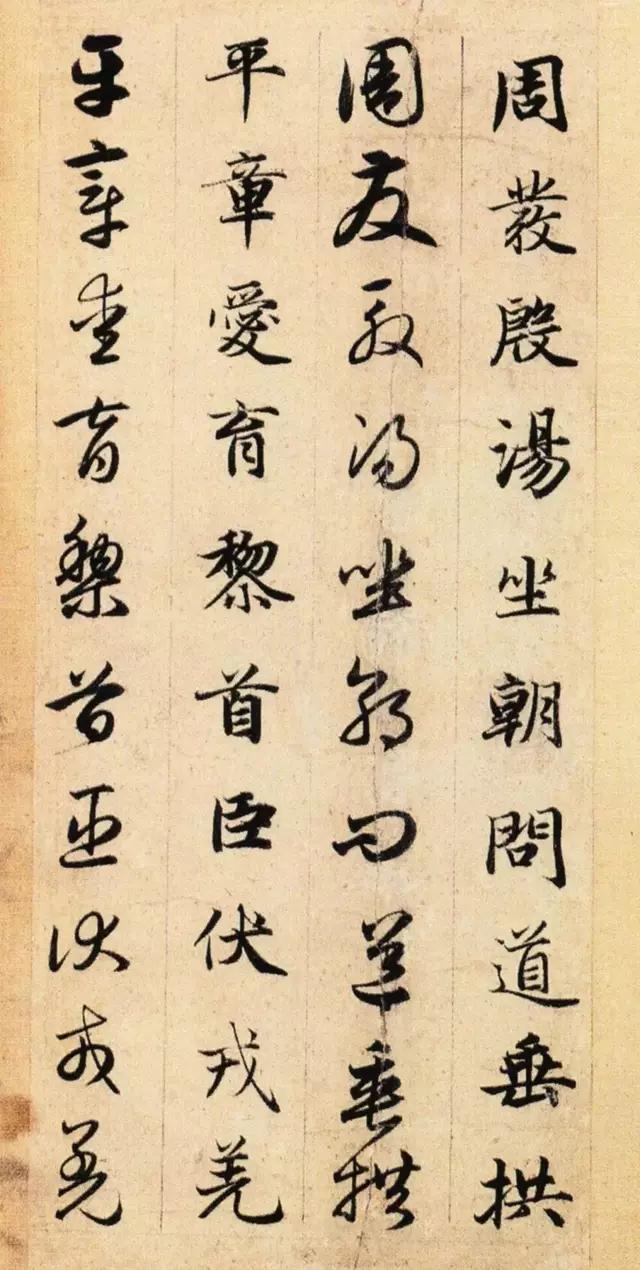 周發殷湯坐朝問道垂拱
周發殷湯坐朝問道垂拱
平章愛育黎首臣伏戎羌
平章愛育黎首臣伏戎羌